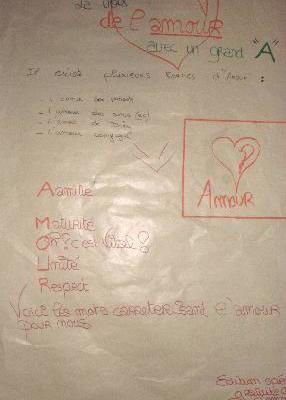 La voix
de l'amour
avec un grand "A"
Il existe plusieurs formes d'Amour :
- l'amour des parents
- l'amour des amis (es)
- l'amour de Dieu
- l'amour conjugal
Amour
Aamitié
Maturité
Oh? c'est
Unité
Respect
Voici les mots carracterisant l'amour
pour nous
Edition
gratuite